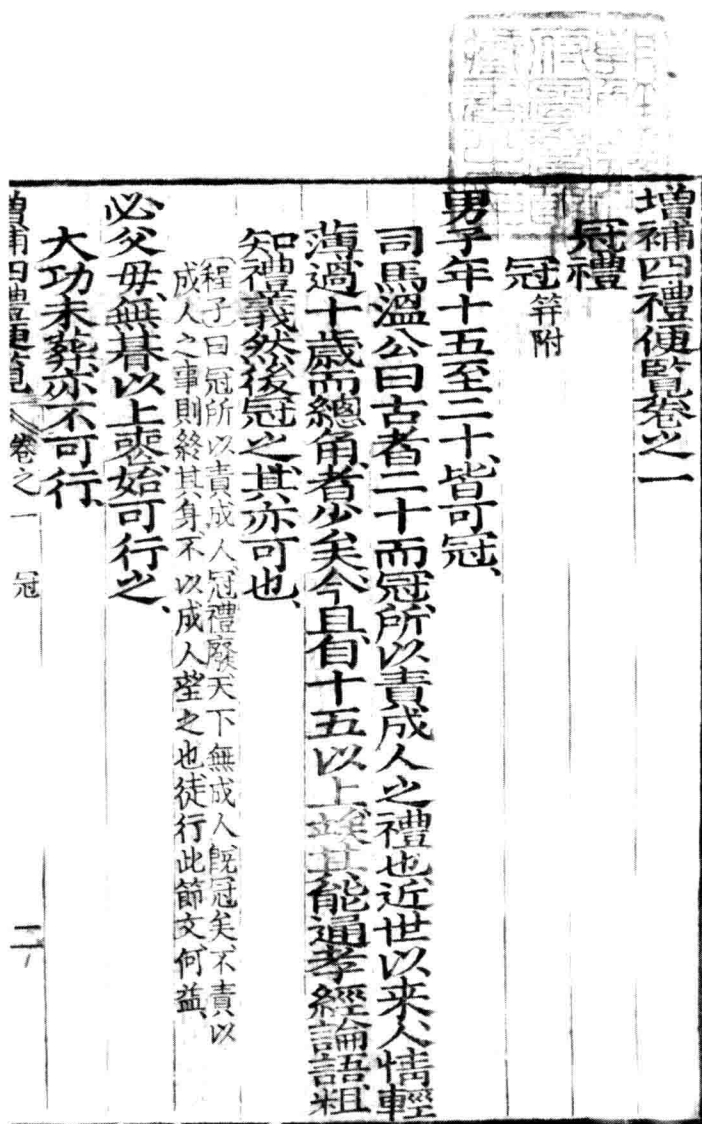 增補四禮便覧卷之一
冠禮
冠 笄附
男子年十五至二十、皆可冠、
司馬溫公曰古者二十而冠、所以責成人之禮也、近世以来、人情輕
薄、過十歲而總角者少矣、今且自十五以上、俟其能通孝經論語、粗
知禮義、然後冠之、其亦可也、
程子曰冠所以責成人、冠禮廢、天下無成人、既冠矣、不責以
成人之事、則終其身、不以成人望之也、徒行此節文、何益、
必父母、無朞以上喪、始可行之、
大功未葬、亦不可行、
增補四禮便覧 卷之一 冠 二